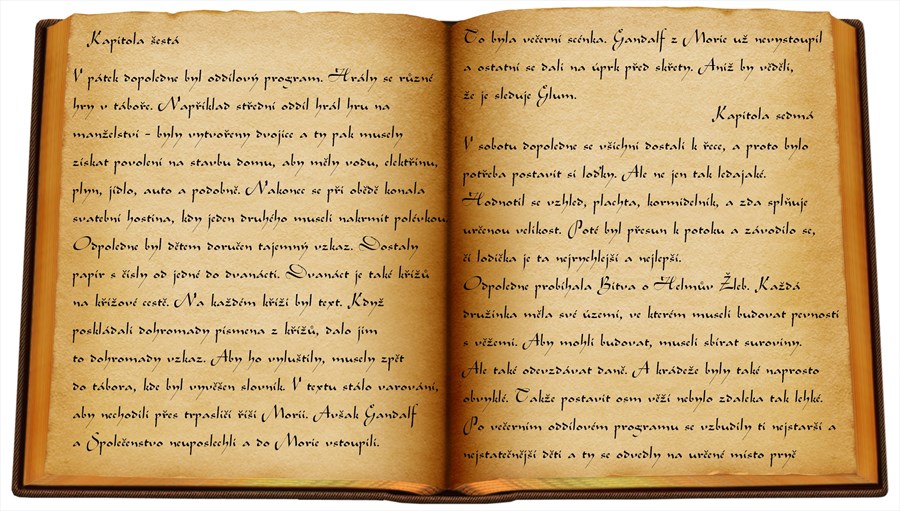 Kapitola šestá
V pátek dopoledne byl oddílový program. Hrály se různé
hry v táboře. Například střední oddíl hrál hru na
manželství - byly vytvořeny dvojice a ty pak musely
získat povolení na stavbu domu, aby měly vodu, elektřinu,
plyn, jídlo, auto a podobně. Nakonec se při obědě konala
svatební hostina, kdy jeden druhého museli nakrmit polévkou.
Odpoledne byl dětem doručen tajemný vzkaz. Dostaly
papír s čísly od jedné do dvanácti. Dvanáct je také křížů
na křížové cestě. Na každém kříži byl text. Když
poskládali dohromady písmena z křížů, dalo jim
to dohromady vzkaz. Aby ho vyluštili, musely zpět
do tábora, kde byl vyvěšen slovník. V textu stálo varování,
aby nechodili přes trpasličí říši Morii. Avšak Gandalf
a Společenstvo neuposlechli a do Morie vstoupili.
To byla večerní scénka. Gandalf z Morie už nevystoupil
a ostatní se dali na úprk před skřety. Aniž by věděli,
že je sleduje Glum.
Kapitola sedmá
V sobotu dopoledne se všichni dostali k řece, a proto bylo
potřeba postavit si loďky. Ale ne jen tak ledajaké.
Hodnotil se vzhled, plachta, kormidelník, a zda splňuje
určenou velikost. Poté byl přesun k potoku a závodilo se,
čí lodička je ta nejrychlejší a nejlepší.
Odpoledne probíhala Bitva o Helmův Žleb. Každá
družinka měla své území, ve kterém museli budovat pevnosti
s věžemi. Aby mohli budovat, museli sbírat suroviny.
Ale také odevzdávat daně. A krádeže byly také naprosto
obvyklé. Takže postavit osm věží nebylo zdaleka tak lehké.
Po večerním oddílovém programu se vzbudily ti nejstarší a
nejstatečnější děti a ty se odvedly na určené místo pryč